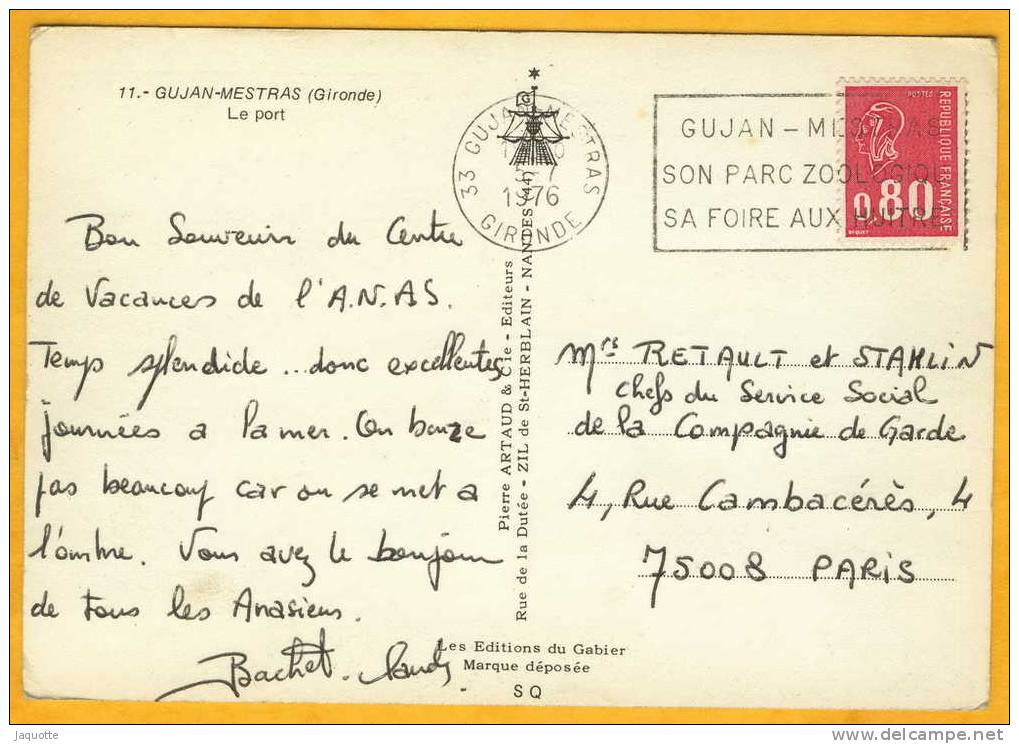 11.- GUJAN-MESTRAS (Gironde)
Le port
33 GUJAN-MESTRAS
1976
GIRONDE
GUJAN - MESTRAS
SON PARC ZOOLOGIQUE
SA FOIRE AUX HUITRES
POSTES
REPUBLIQUE FRANÇAISE
0,80
Bon Souvenir du Centre
de Vacances de l'A.N.AS.
Temps splendide... donc excellentes
journées a la mer. On bronze
pas beaucoup car on se met a
l'ombre. Vous avez le bonjour
de tous les Anasiens.
Bachet.
Pierre ARTAUD & Cie - Editeurs
Rue de la Dutée - ZIL de St-HERBLAIN - NANTES (44)
Mrs RETAULT et STAHLIN
Chefs du Service Social
de la Compagnie de Garde
4, Rue Cambacérès, 4
75008 PARIS
Les Editions du Gabier
Marque déposée
S Q
Jaquotte
http://www.delcampe.net